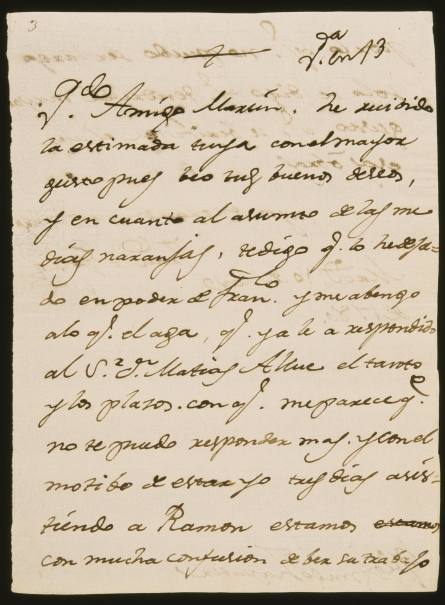 3
+ en 13
Q.do Amigo Martin. he recibido
la estimada tuya con el mayor
gusto pues beo tus buenos deseos,
y en cuanto al asumto de las me
dias naransas, te digo q.e lo he deja-
do en poder de Fran.co y me abengo
a lo q.e el aga, q.e ya le a respondido
al S.r D.n Matias Allue el tanto
y los plasos. con q.e me parece q.e
no te puedo responder mas. y con el
motibo de estar yo tres dias asis-
tiendo a Ramon estamos estamos
con mucha confusion de ber su trabajo